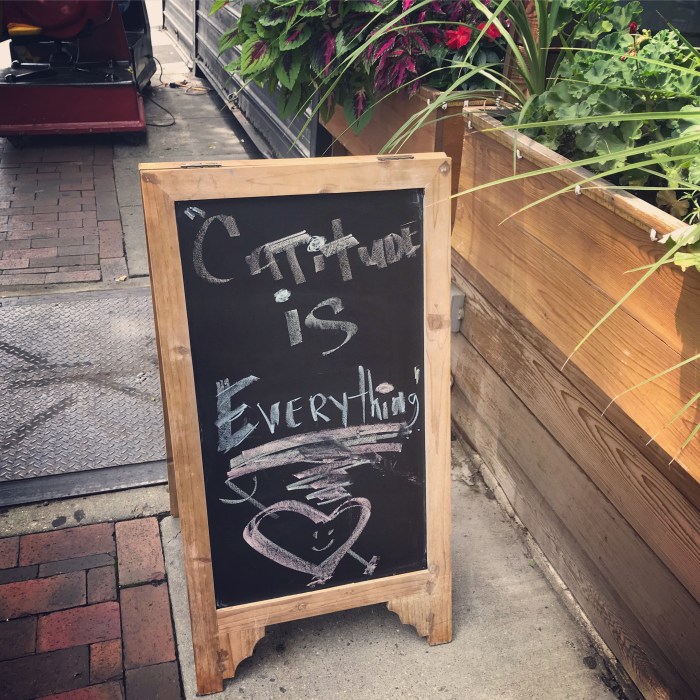 "CATiTUDE
is
EVERYthing"